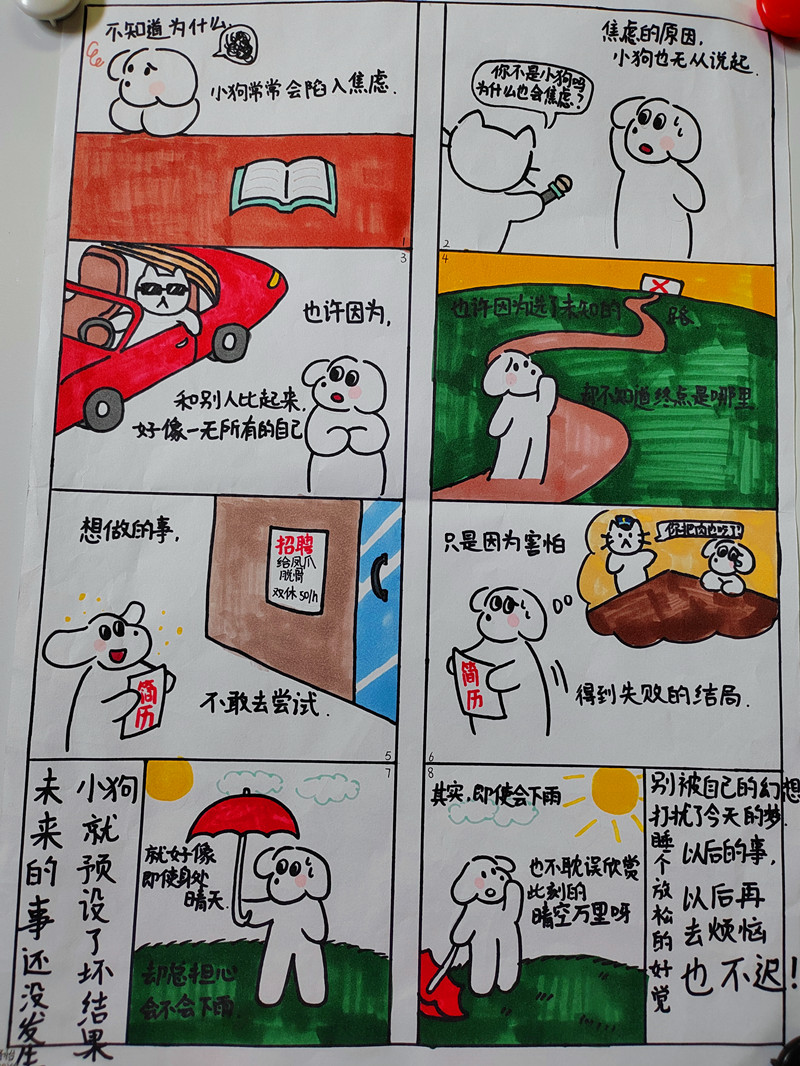 不知道为什么，
小狗常常会陷入焦虑.
1
焦虑的原因，
小狗也无从说起.
你不是小狗吗
为什么也会焦虑?
2
3
也许因为，
和别人比起来，
好像一无所有的自己
4
也许因为选了未知的 路
却不知道终点是哪里
想做的事，
招聘
给凤爪
脱骨
双休 50/h
简历
不敢去尝试.
5
只是因为害怕
你把肉也吃了!
简历
得到失败的结局.
6
7
就好像
即使身处
晴天
却总担心
会不会下雨.
小狗就预设了坏结果
未来的事还没发生
8
其实，即使会下雨
也不耽误欣赏
此刻的
晴空万里呀
别被自己的幻想
打扰了今天的梦.
睡个放松的好觉
以后的事，
以后再
去烦恼
也不迟!